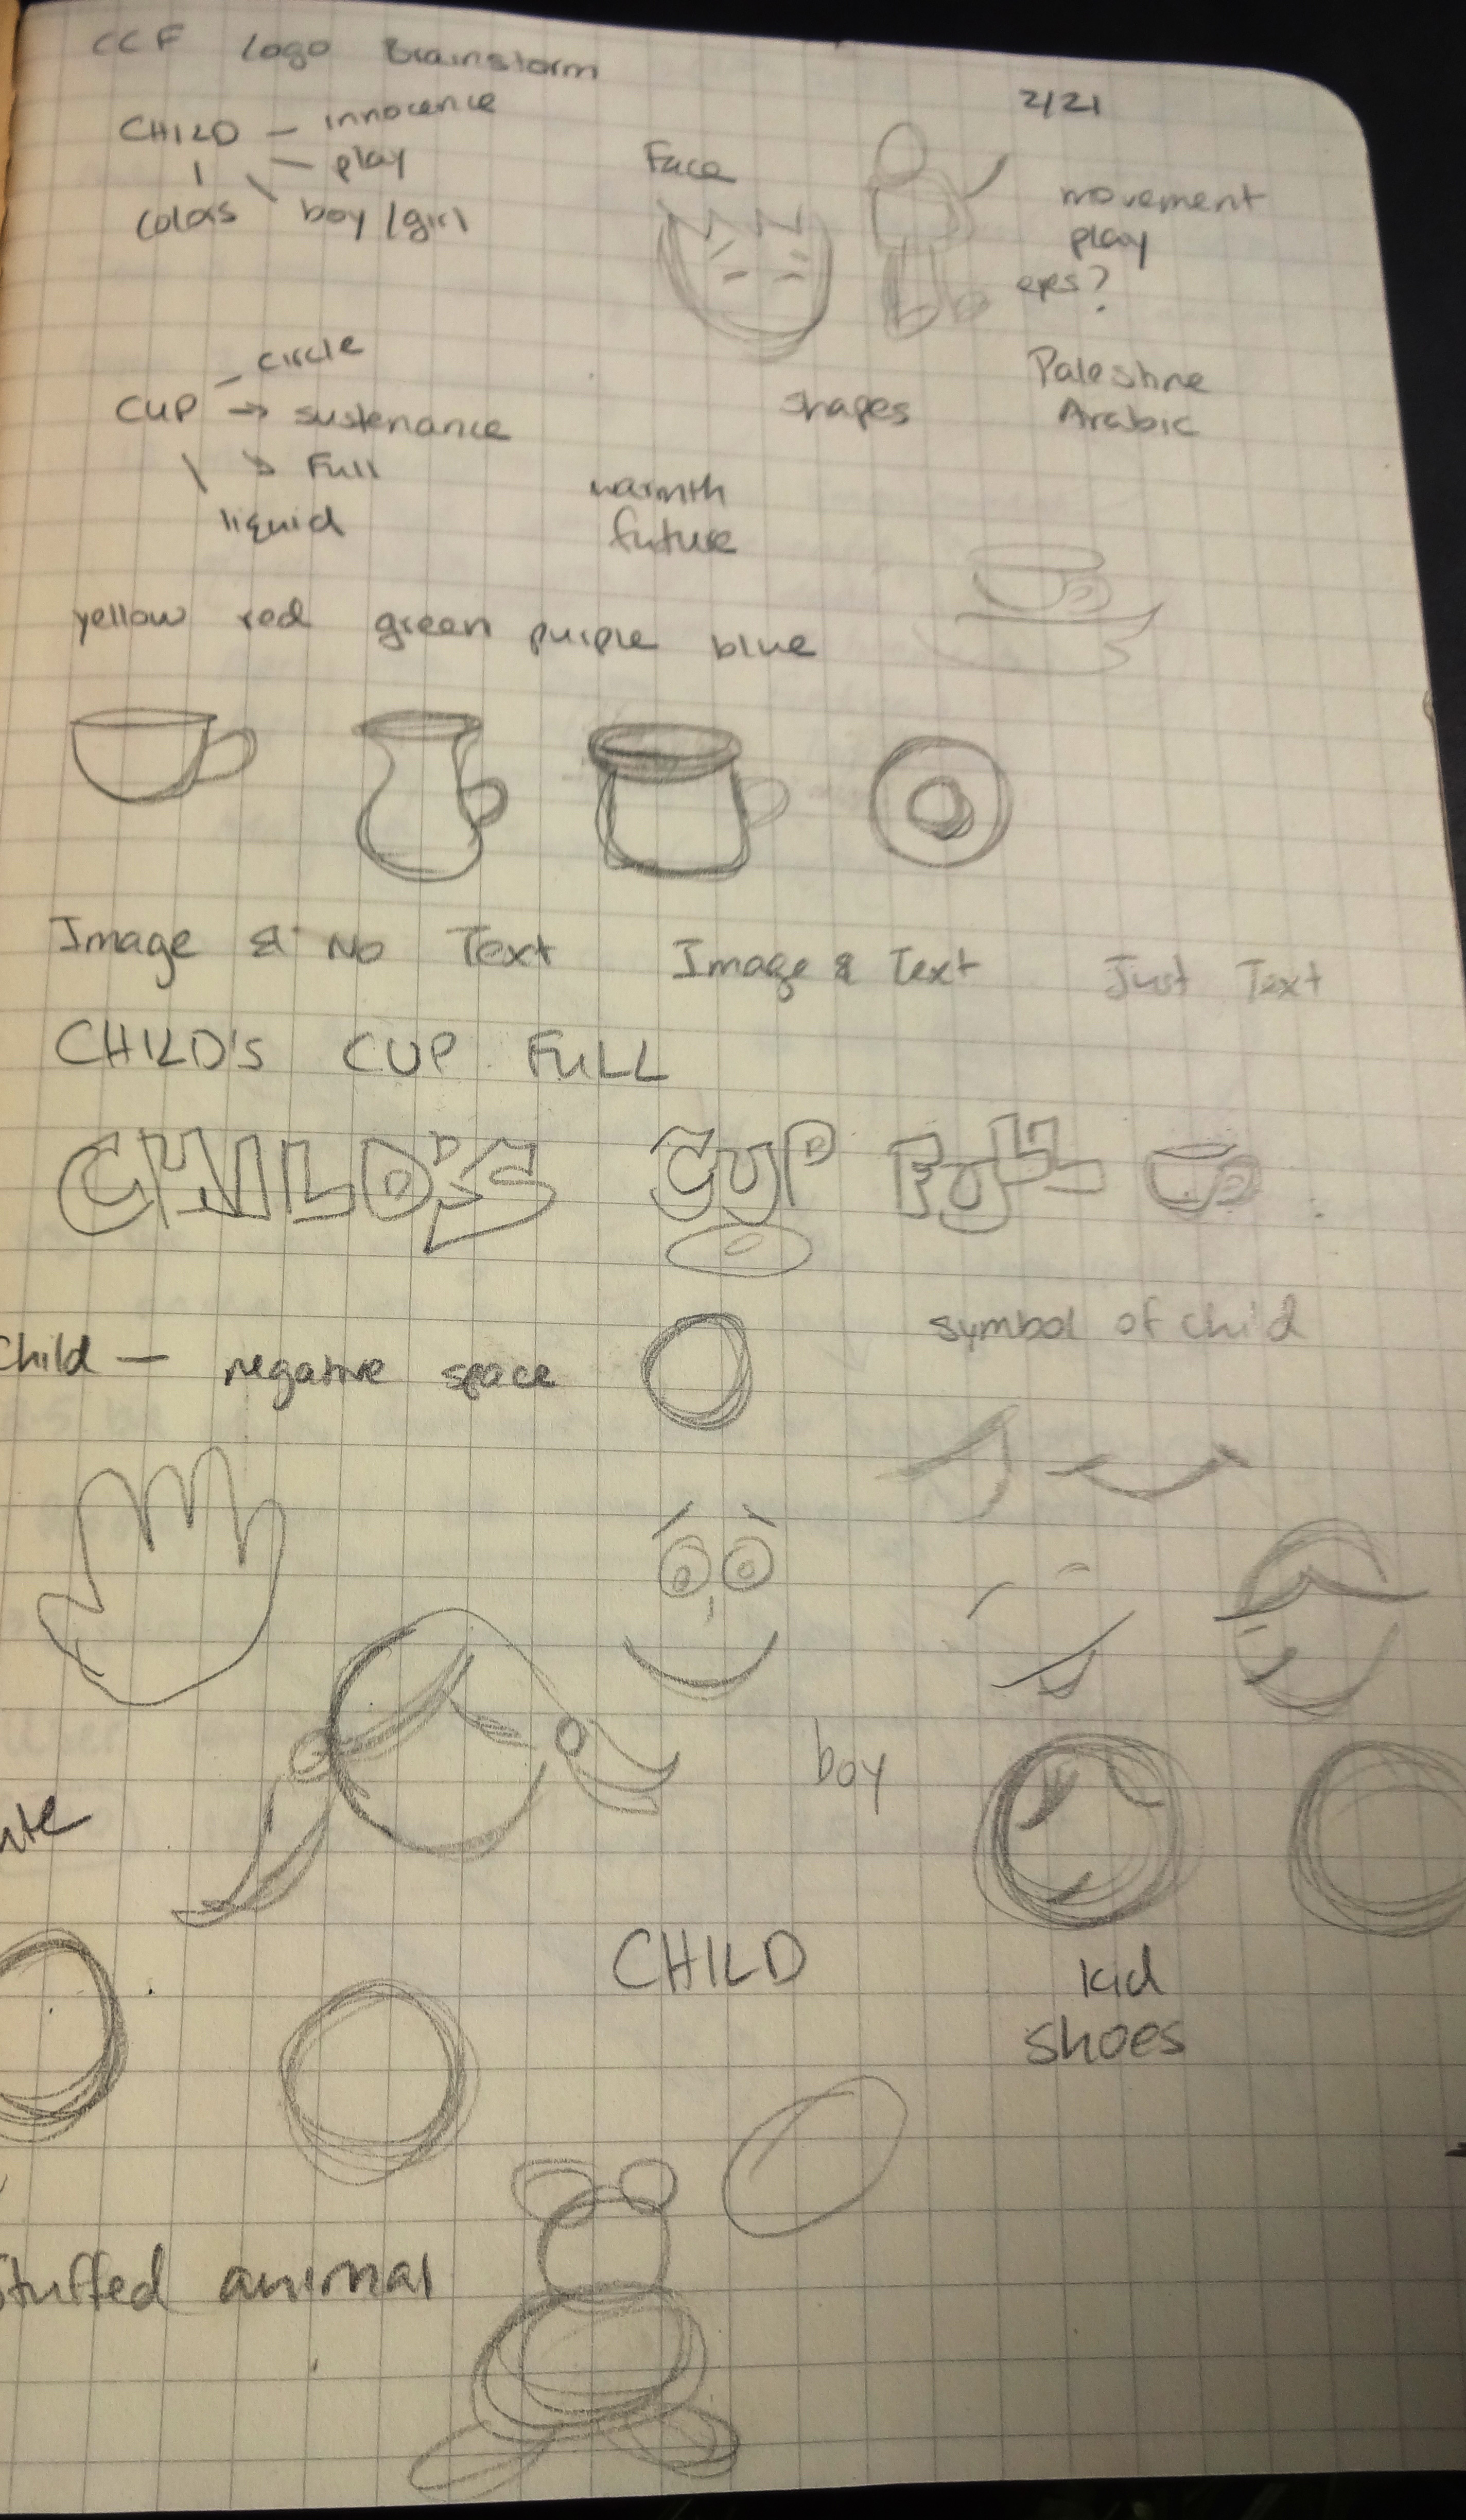 CCF Logo Brainstorm
2/21
CHILD — innocence
play
colors boy/girl
Face
movement
play
eyes?
CUP circle
sustenance
Full
liquid
shapes
Palestine
Arabic
warmth
future
yellow red green purple blue
Image & No Text Image & Text Just Text
CHILD'S CUP FULL
CHILD'S CUP FULL
Child — negative space
symbol of child
boy
CHILD
kid
shoes
Stuffed animal